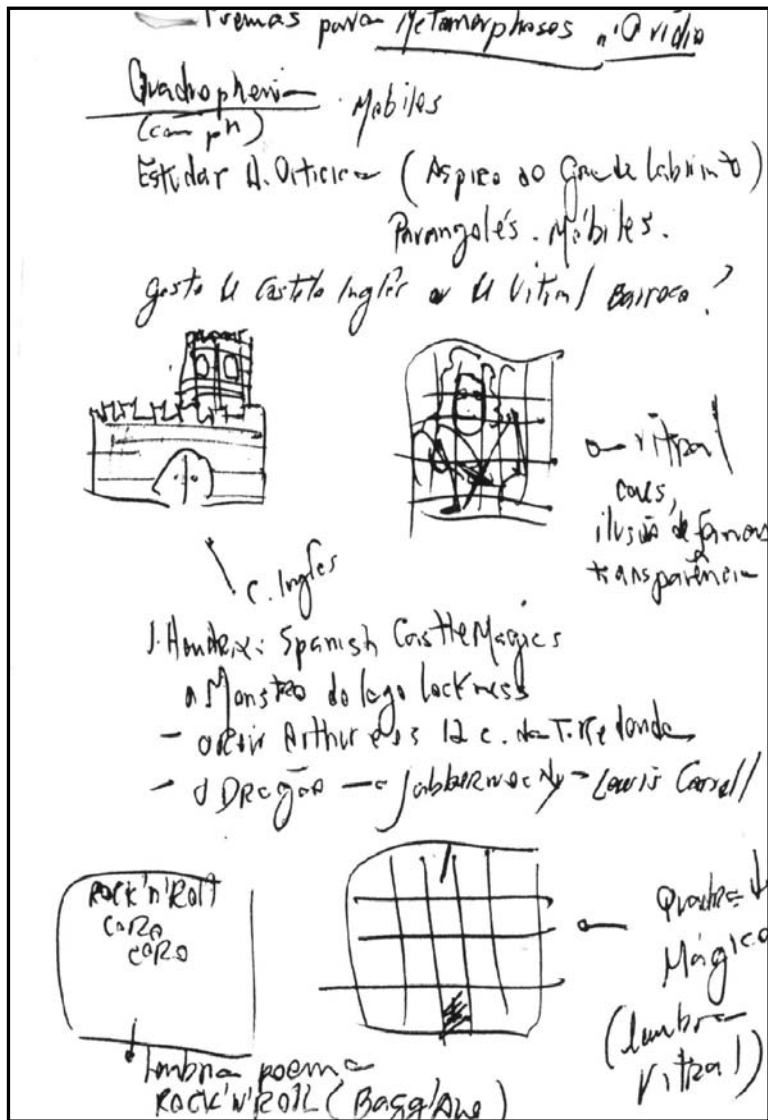 Poemas para Metamorphoses n'Ovidio
Quadrophenia . Mobiles
(com ph)
Estudar H. Oiticica (Aspiro ao Grande Labirinto)
Parangolés. Móbiles.
gesto de Castelo Inglês ou de Vitral Barroco?
vitral
cores,
ilusão de formas
transparência
C. Ingles
J. Hendrix: Spanish Castle Magics
o Monstro do lago lockness
- o Rei Arthur e os 12 c. da T. Redonda
- o Dragão - Jabberwocky - Lewis Carroll
ROCK'n'Roll
CARA
CARO
Quadrado
Mágico
(lembra
Vitral)
lembra poema
ROCK'N'ROLL